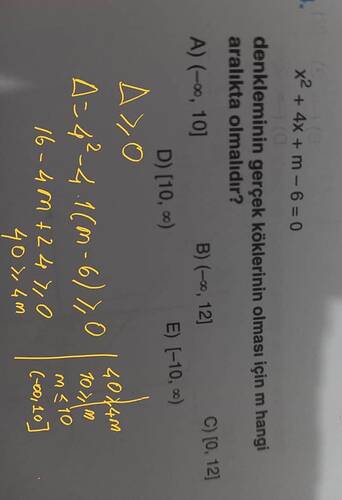 x² + 4x + m – 6 = 0
denkleminin gerçek köklerinin olması için m hangi
aralıkta olmalıdır?
A) (–∞, 10]
B) (–∞, 12]
C) [0, 12]
D) [10, ∞)
E) [–10, ∞)
Δ ≥ 0
Δ = 4² – 4 . 1 (m – 6) ≥ 0
16 – 4m + 24 ≥ 0
40 ≥ 4m
40 ≥ 4m
10 ≥ m
m ≤ 10
(-∞, 10]